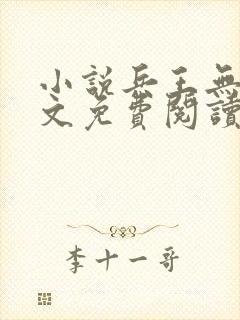 小說兵王無
文免費閱讀
李十一哥